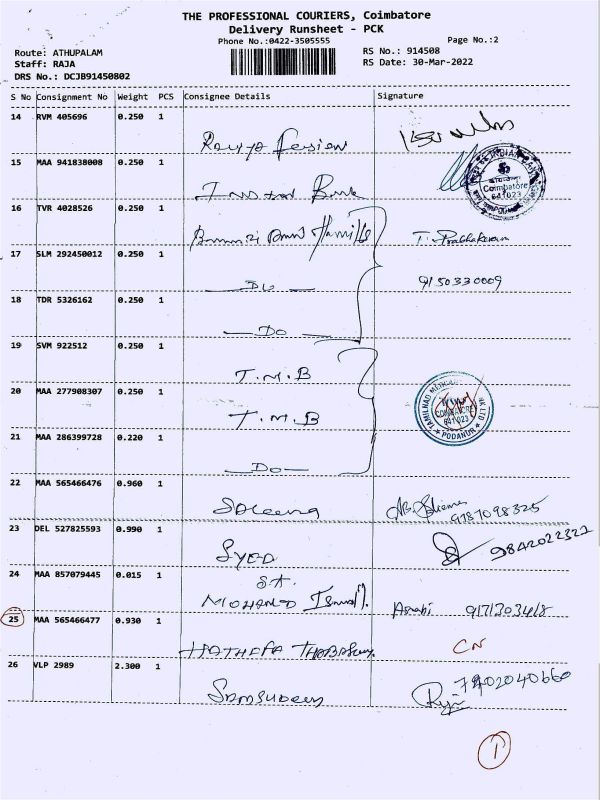 THE PROFESSIONAL COURIERS, Coimbatore
Delivery Runsheet - PCK
Phone No.:0422-3505555
Page No.:2
Route: ATHUPALAM
Staff: RAJA
DRS No.: DCJB91450802
RS No.: 914508
RS Date: 30-Mar-2022
S No Consignment No Weight PCS Consignee Details Signature
14 RVM 405696 0.250 1
15 MAA 941838008 0.250 1
Indian Bank
Coimbatore
641023
16 TVR 4028526 0.250 1
T. Prabhakaran
17 SLM 292450012 0.250 1
9150330009
Do
18 TDR 5326162 0.250 1
Do
19 SVM 922512 0.250 1
T.M.B
20 MAA 277908307 0.250 1
T.M.B
TAMILNAD
641023
PODANUR
21 MAA 286399728 0.220 1
Do
22 MAA 565466476 0.960 1
9787098325
23 DEL 527825593 0.990 1
SYED
9842022322
24 MAA 857079445 0.015 1
MOHAMED
25 MAA 565466477 0.930 1
CN
26 VLP 2989 2.300 1
1